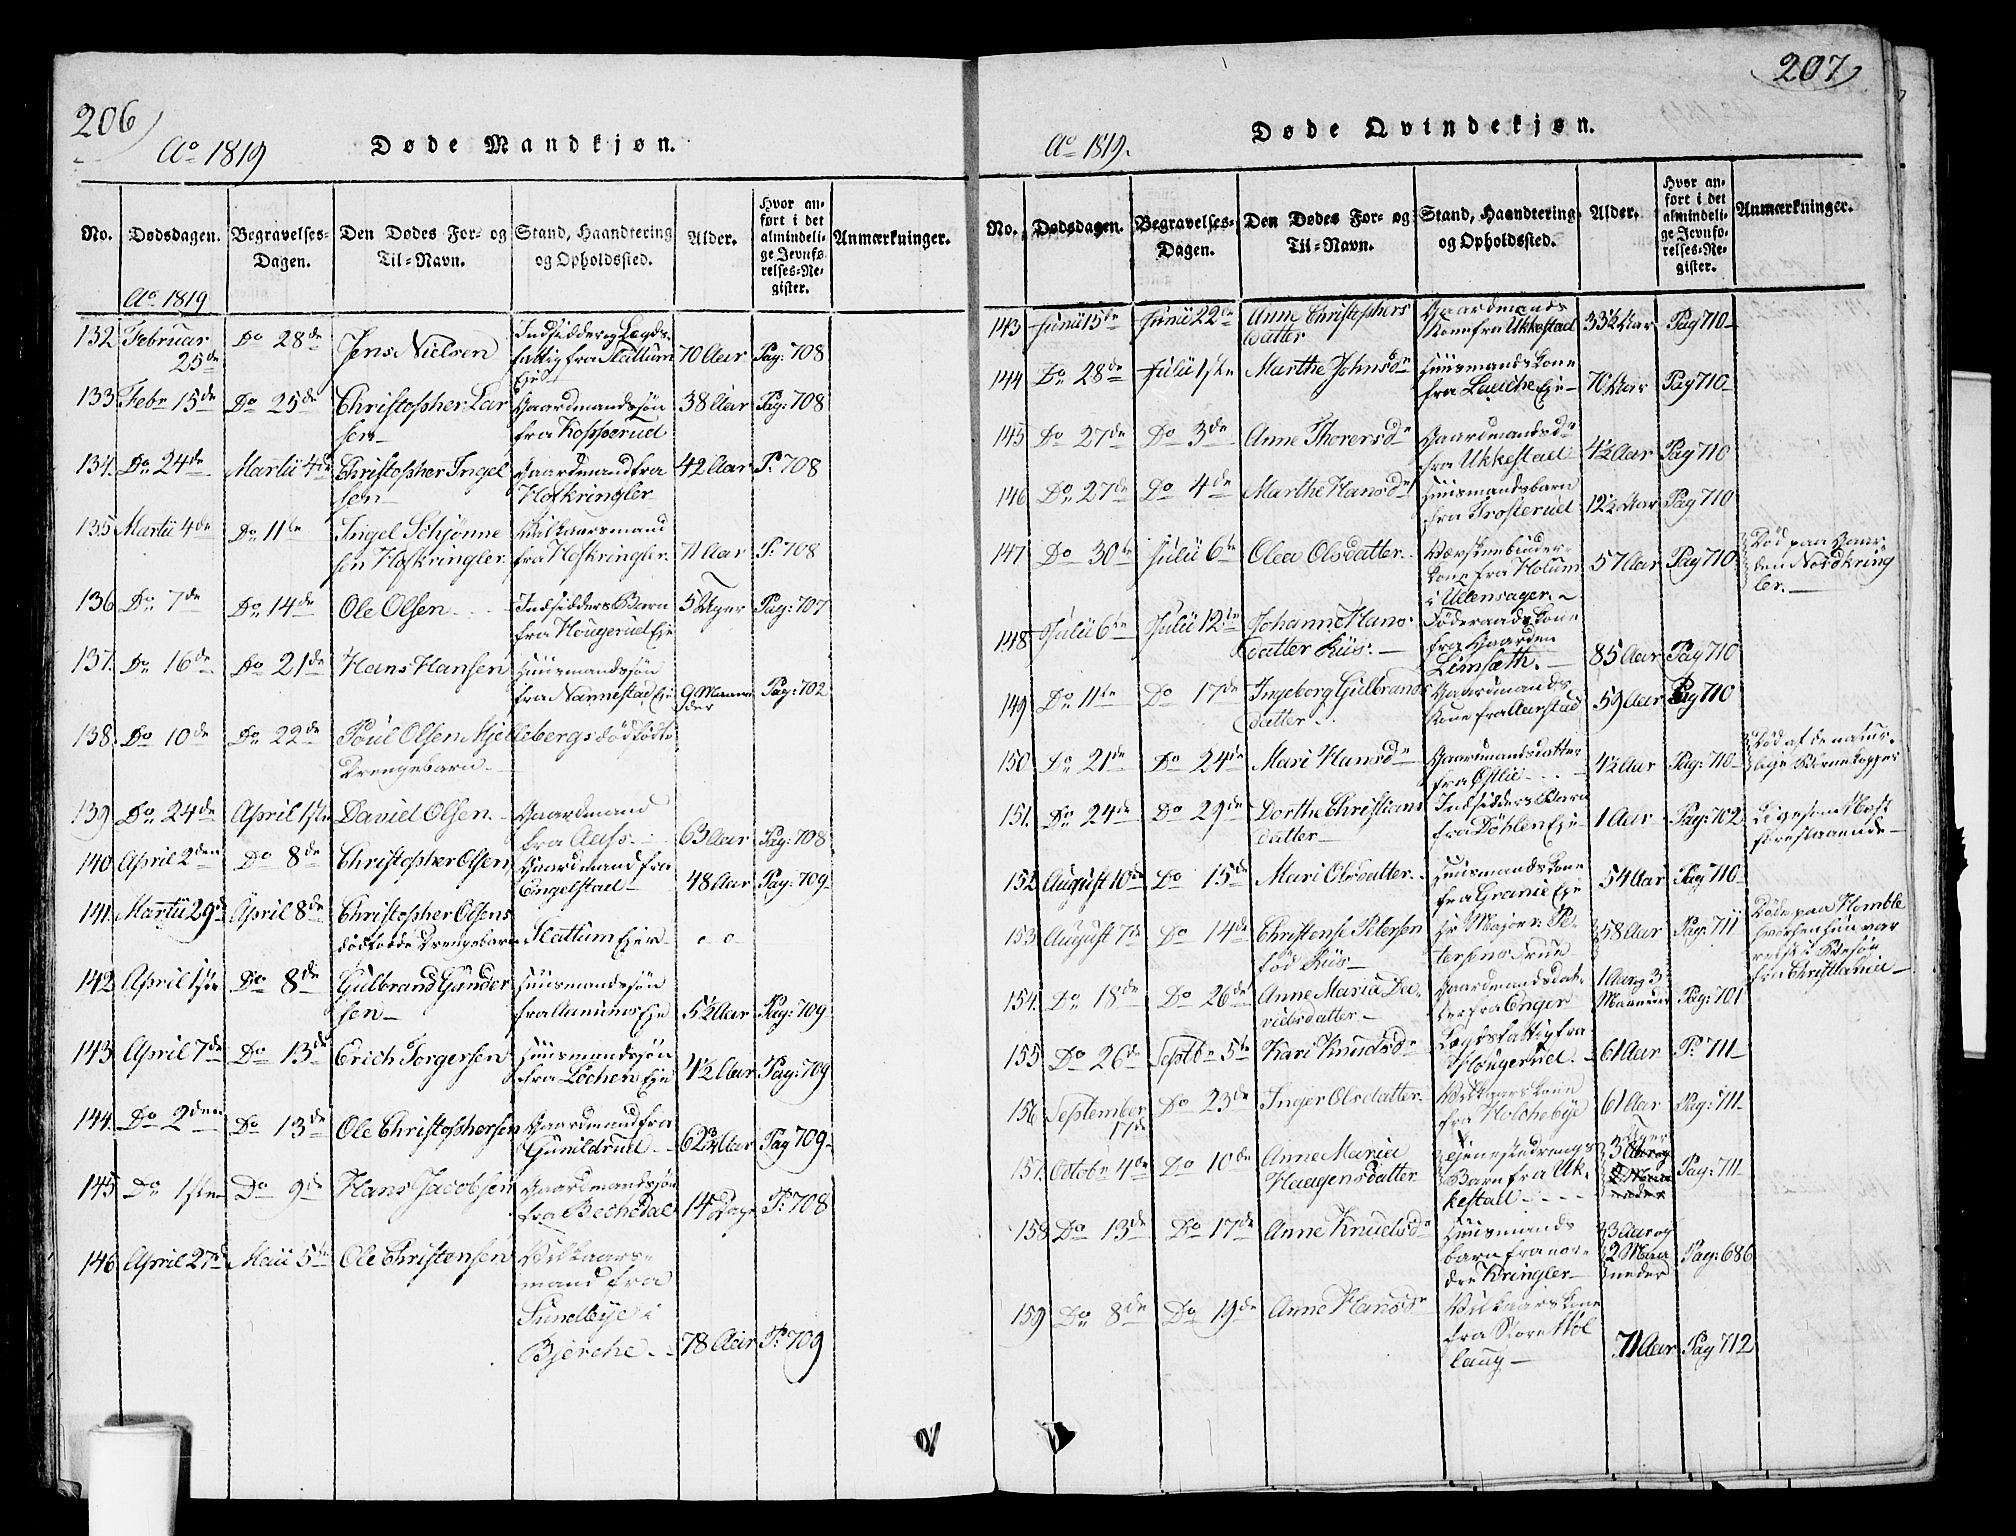 206
Ao 1819
Døde Mandkjøn.
No.
Dødsdagen.
Begravelses-
Dagen.
Den Dødes For- og
Til-Navn.
Stand, Haandtering
og Opholdssted.
Alder.
Hvor an-
ført i det
almindeli-
ge Jevnfø-
relses-Re-
gister.
Anmærkninger.
Ao 1819
132 Februar
25de
Do 28de
Jens Nielsen
Indsidder og Lægds-
fattig fra Slattum
Eje
70 Aar
Pag: 708
133 Febr 15de
Do 25de
Christopher Lar
sen
Gaardmandssøn
fra Kopperud
38 Aar
Pag: 708
134. Do 24de
Martii 4de
Christopher Ingel
sen
Gaardmand fra
Hofkringler
42 Aar
P. 708
135 Martii 4de
Do 11te
Ingel Schjønne
sen Hofkringler
Vilkaarsmand
fra Hofkringler
71 Aar
P: 708
136 Do 7de
Do 14de
Ole Olsen
Indsidders Barn
fra Hougerud Eje
5 Uger
Pag: 707
137. Do 16de
Do 21de
Hans Hansen
Huusmandssøn
fra Nannestad Eje
9 Maane
der
Pag: 702
138. Do 10de
Do 22de
Poul Olsen Mjellebergs dödfödte
Drengebarn
139 Do 24de
April 1ste
David Olsen
Gaardmand
fra Aass.
63 Aar
Pag: 708
140 April 2den
Do 8de
Christopher Olsen
Gaardmand fra
Engelstad
48 Aar
Pag: 709
141. Martii 29de
April 8de
Christopher Olsens
dödfödde Drengebarn
Slattum Ejer
o o
142 April 1ste
Do 8de
Gulbrand Gunder
sen
Huusmandssøn
fra Amuns Eje
5½ Aar
Pag: 709
143 April 7de
Do 13de
Erich Torgersen
Huusmandssøn
fra Løchen Eje
4½ Aar
Pag: 709
144. Do 2den
Do 13de
Ole Christophersen
Gaardmand fra
Gunildrud
62¾ Aar
Pag 709
145 Do 1sten
Do 9de
Hans Jacobsen
Gaardmandssøn
fra Bechedal
14 Dage
P: 708
146 April 27de
Maii 5te
Ole Christensen
Vilkaars-
mand fra
Sundbye i
Bjerche
78 Aar
P: 709
207
Ao 1819.
Døde Qvindekjøn.
No.
Dødsdagen.
Begravelses-
Dagen.
Den Dødes For- og
Til-Navn.
Stand, Haandtering
og Opholdssted.
Alder.
Hvor an-
ført i det
almindeli-
ge Jevnfø-
relses-Re-
gister.
Anmærkninger.
143 Junii 15de
Junii 22de
Anne Christophers
datter
Gaardmands
Kone fra Ukkestad
33½ Aar
Pag 710
144 Do 28de
Julii 1ste
Marthe Johnsdr
Huusmands Kone
fra Lauche Eje
70 Aar
Pag 710
145 Do 27de
Do 3de
Anne Thorersdr
Gaardmandsdr
fra Ukkestad
4½ Aar
Pag 710
146 Do 27de
Do 4de
Marthe Hansdr
Huusmandsbarn
fra Trosterud
12½ Aar
Pag 710
147 Do 30te
Julii 6te
Olea Olsdatter
Kone fra Holum
i Ullensager
57 Aar
Pag 710
Död paa Gaar
den Nordkring
ler.
148 Julii 6te
Julii 12te
Johanne Hans
datter Riis:
Föderaads Kone
fra Gaarden
Limsæth.
85 Aar
Pag 710
149 Do 11te
Do 17de
Ingeborg Gulbrands
datter
Gaardmands
Kone fra Aarstad
59 Aar
Pag 710
150 Do 21de
Do 24de
Mari Hansdr
Gaardmandsdatter
fra Østlie
4½ Aar
Pag: 710
Död af de natur-
lige Börnekopper
151. Do 24de
Do 29de
Dorthe Christians
datter
Indsidders Barn
fra Döhlen Eje
1 Aar
Pag: 702
Ligesom Næst
forestaaende
152 August 10de
Do 15de
Mari Olsdatter
Huusmands Kone
fra Granie Eje
54 Aar
Pag 710
153 August 7de
Do 14de
Christense Petersen
fød Riis
Hr Major v: Pe-
tersens Frue
58 Aar
Pag: 711
Döde paa Homble
hvorhen hun var
reist i Besøg
fra Christiania
154. Do 18de
Do 26de
Anne Maria Da-
vidsdatter
Gaardmandsdat-
ter fra Enger
1 Aar og 3
Maaneder
Pag: 701
155 Do 26de
Septbr 5te
Kari Knudsdr
Lægdsfattig fra
Hougerud
61 Aar
P: 711
156 September
17de
Do 23de
Inger Olsdatter
Vilkaars Kone
fra Holchebye
61 Aar
Pag: 711
157. Octobr 4de
Do 10de
Anne Maria
Haagensdatter
Tjenestedrengs
Barn fra Uk-
kestad
3 Uger
Pag: 711
158 Do 13de
Do 17de
Anne Knudsdr
Huusmands
barn fra nor-
dre Kringler
3 Aar og
2 Maa
neder
Pag: 686
159 Do 8de
Do 19de
Anne Hansdr
Vilkaars Kone
fra Store Kol
laug
71 Aar
Pag 712